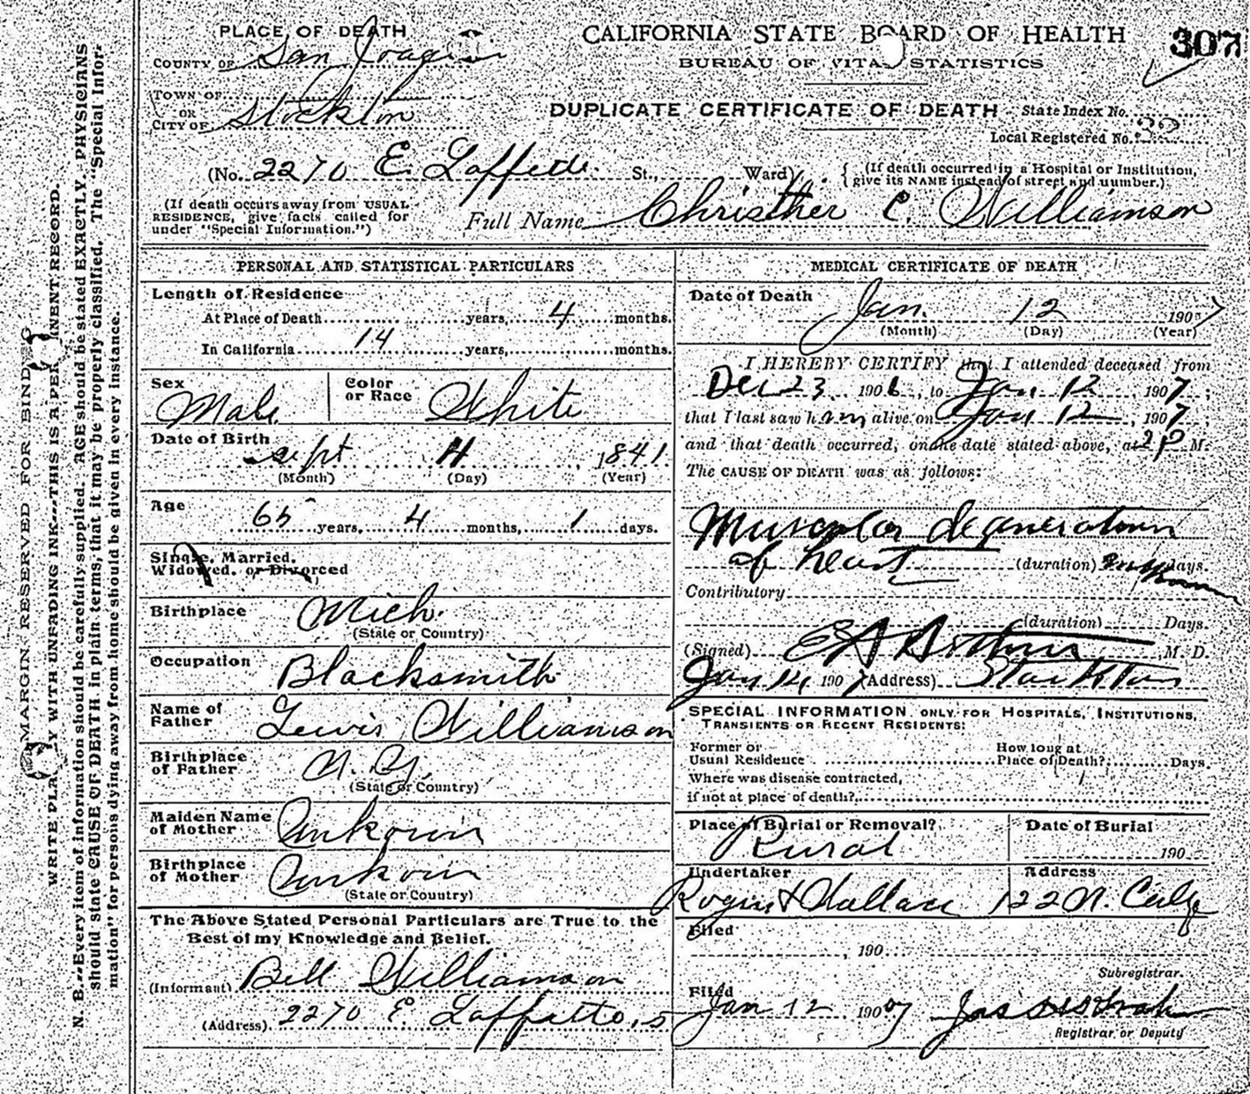 PLACE OF DEATH
COUNTY OF San Joaquin
TOWN OF
OR
CITY OF Stockton
CALIFORNIA STATE BOARD OF HEALTH
BUREAU OF VITAL STATISTICS
307
DUPLICATE CERTIFICATE OF DEATH
State Index No.
Local Registered No. 32
(No. 2270 E. St., Ward)
(If death occurred in a Hospital or Institution, give its NAME instead of street and number.)
(If death occurs away from USUAL
RESIDENCE, give facts called for
under "Special Information.")
Full Name Christher C. Williamson
PERSONAL AND STATISTICAL PARTICULARS
Length of Residence
At Place of Death years, 4 months.
In California 14 years, months.
Sex Male
Color or Race White
Date of Birth
Sept 11, 1841
(Month) (Day) (Year)
Age
65 years, 4 months, 1 days.
Single, Married,
Widowed, or Divorced
Birthplace Mich.
(State or Country)
Occupation Blacksmith
Name of Father Lewis Williamson
Birthplace of Father N. Y.
(State or Country)
Maiden Name of Mother Unkown
Birthplace of Mother Unkown
(State or Country)
The Above Stated Personal Particulars are True to the
Best of my Knowledge and Belief.
(Informant) Bell Williamson
(Address) 2270 E.
MEDICAL CERTIFICATE OF DEATH
Date of Death
Jan. 12 1907
(Month) (Day) (Year)
I HEREBY CERTIFY that I attended deceased from
Dec 23 1906, to Jan 12, 1907;
that I last saw him alive on Jan 12, 1907
and that death occurred, on the date stated above, at 2 P M.
The CAUSE OF DEATH was as follows:
Muscular degeneration
of heart (duration) days.
Contributory
(duration) Days.
(Signed) M. D.
Jan 14 1907 (Address) Stockton
SPECIAL INFORMATION ONLY FOR HOSPITALS, INSTITUTIONS,
TRANSIENTS OR RECENT RESIDENTS:
Former or Usual Residence
How long at Place of Death? Days.
Where was disease contracted,
if not at place of death?
Place of Burial or Removal?
Rural
Date of Burial
190
Undertaker
Wallace
Address
122 N. Calif
Filed
, 190
Subregistrar.
Filed
Jan 12 1907
Registrar or Deputy
MARGIN RESERVED FOR BINDING
WRITE PLAINLY WITH UNFADING INK---THIS IS A PERMANENT RECORD.
N. B.--Every item of Information should be carefully supplied. AGE should be stated EXACTLY. PHYSICIANS
should state CAUSE OF DEATH in plain terms, that it may be properly classified. The "Special Infor-
mation" for persons dying away from home should be given in every instance.